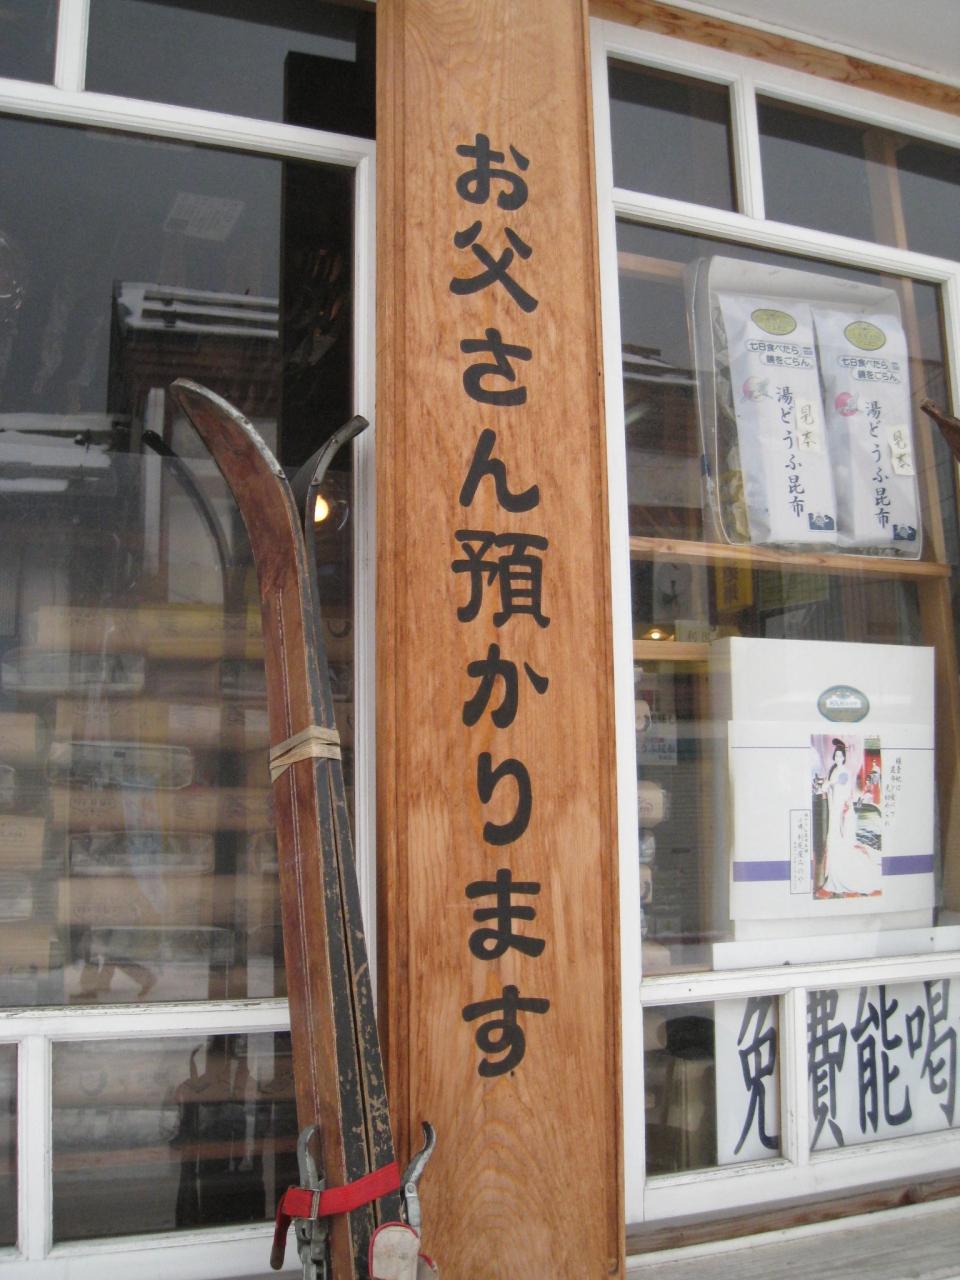 お父さん預かります
七日食べたら
鏡をごらん
湯どうふ昆布
見本
七日食べたら
鏡をごらん
湯どうふ昆布
見本
免費能喝